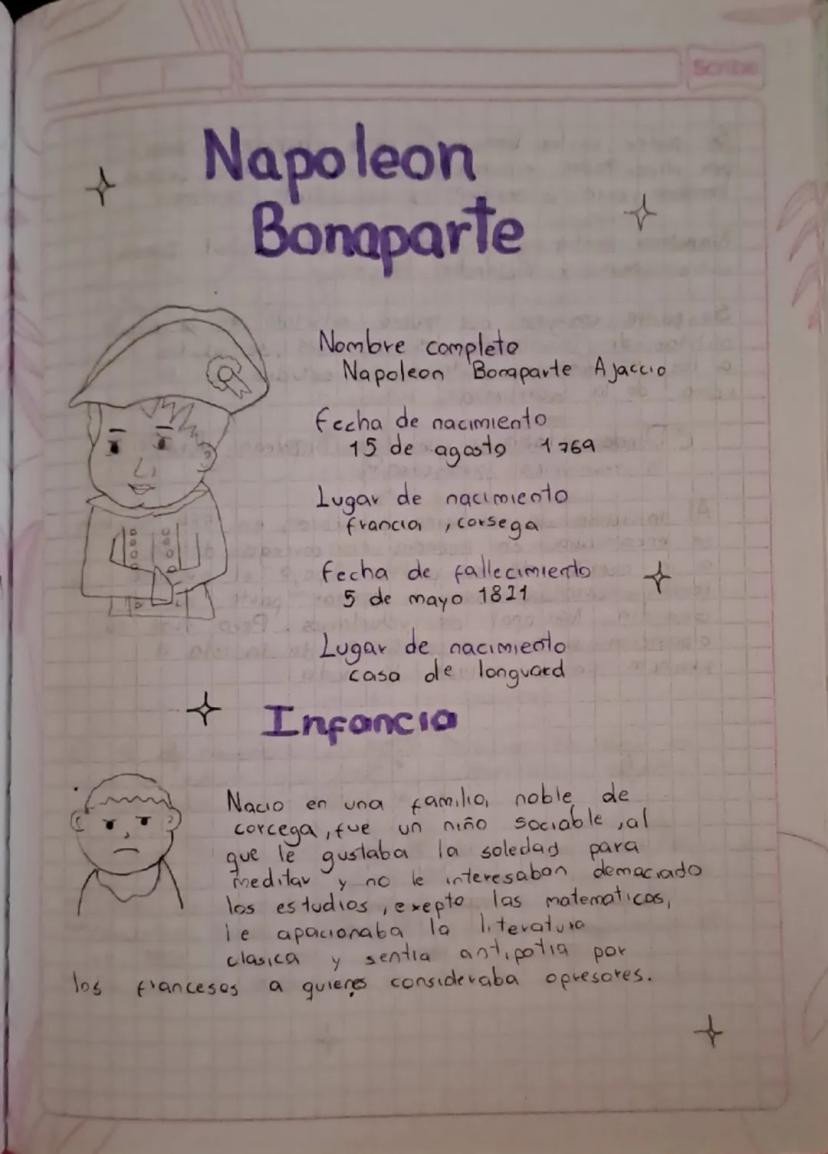 Scribe
Napoleon
Bonaparte
Nombre completo
Napoleon Bonaparte Ajaccio
Fecha de nacimiento
15 de agosto 1769
Lugar de nacimiento
francia, corsega
Fecha de fallecimiento
5 de mayo 1821
Lugar de nacimiento
casa de longuard
Infancia
Nacio en una familia, noble de
corcega, fue un niño sociable, al
que le gustaba la soledad para
meditar y no le interesaban demaciado
los estudios, exepto las matematicas,
le apacionaba la literatura
clasica y sentia antipatia por
los franceses a quienes consideraba opresores.